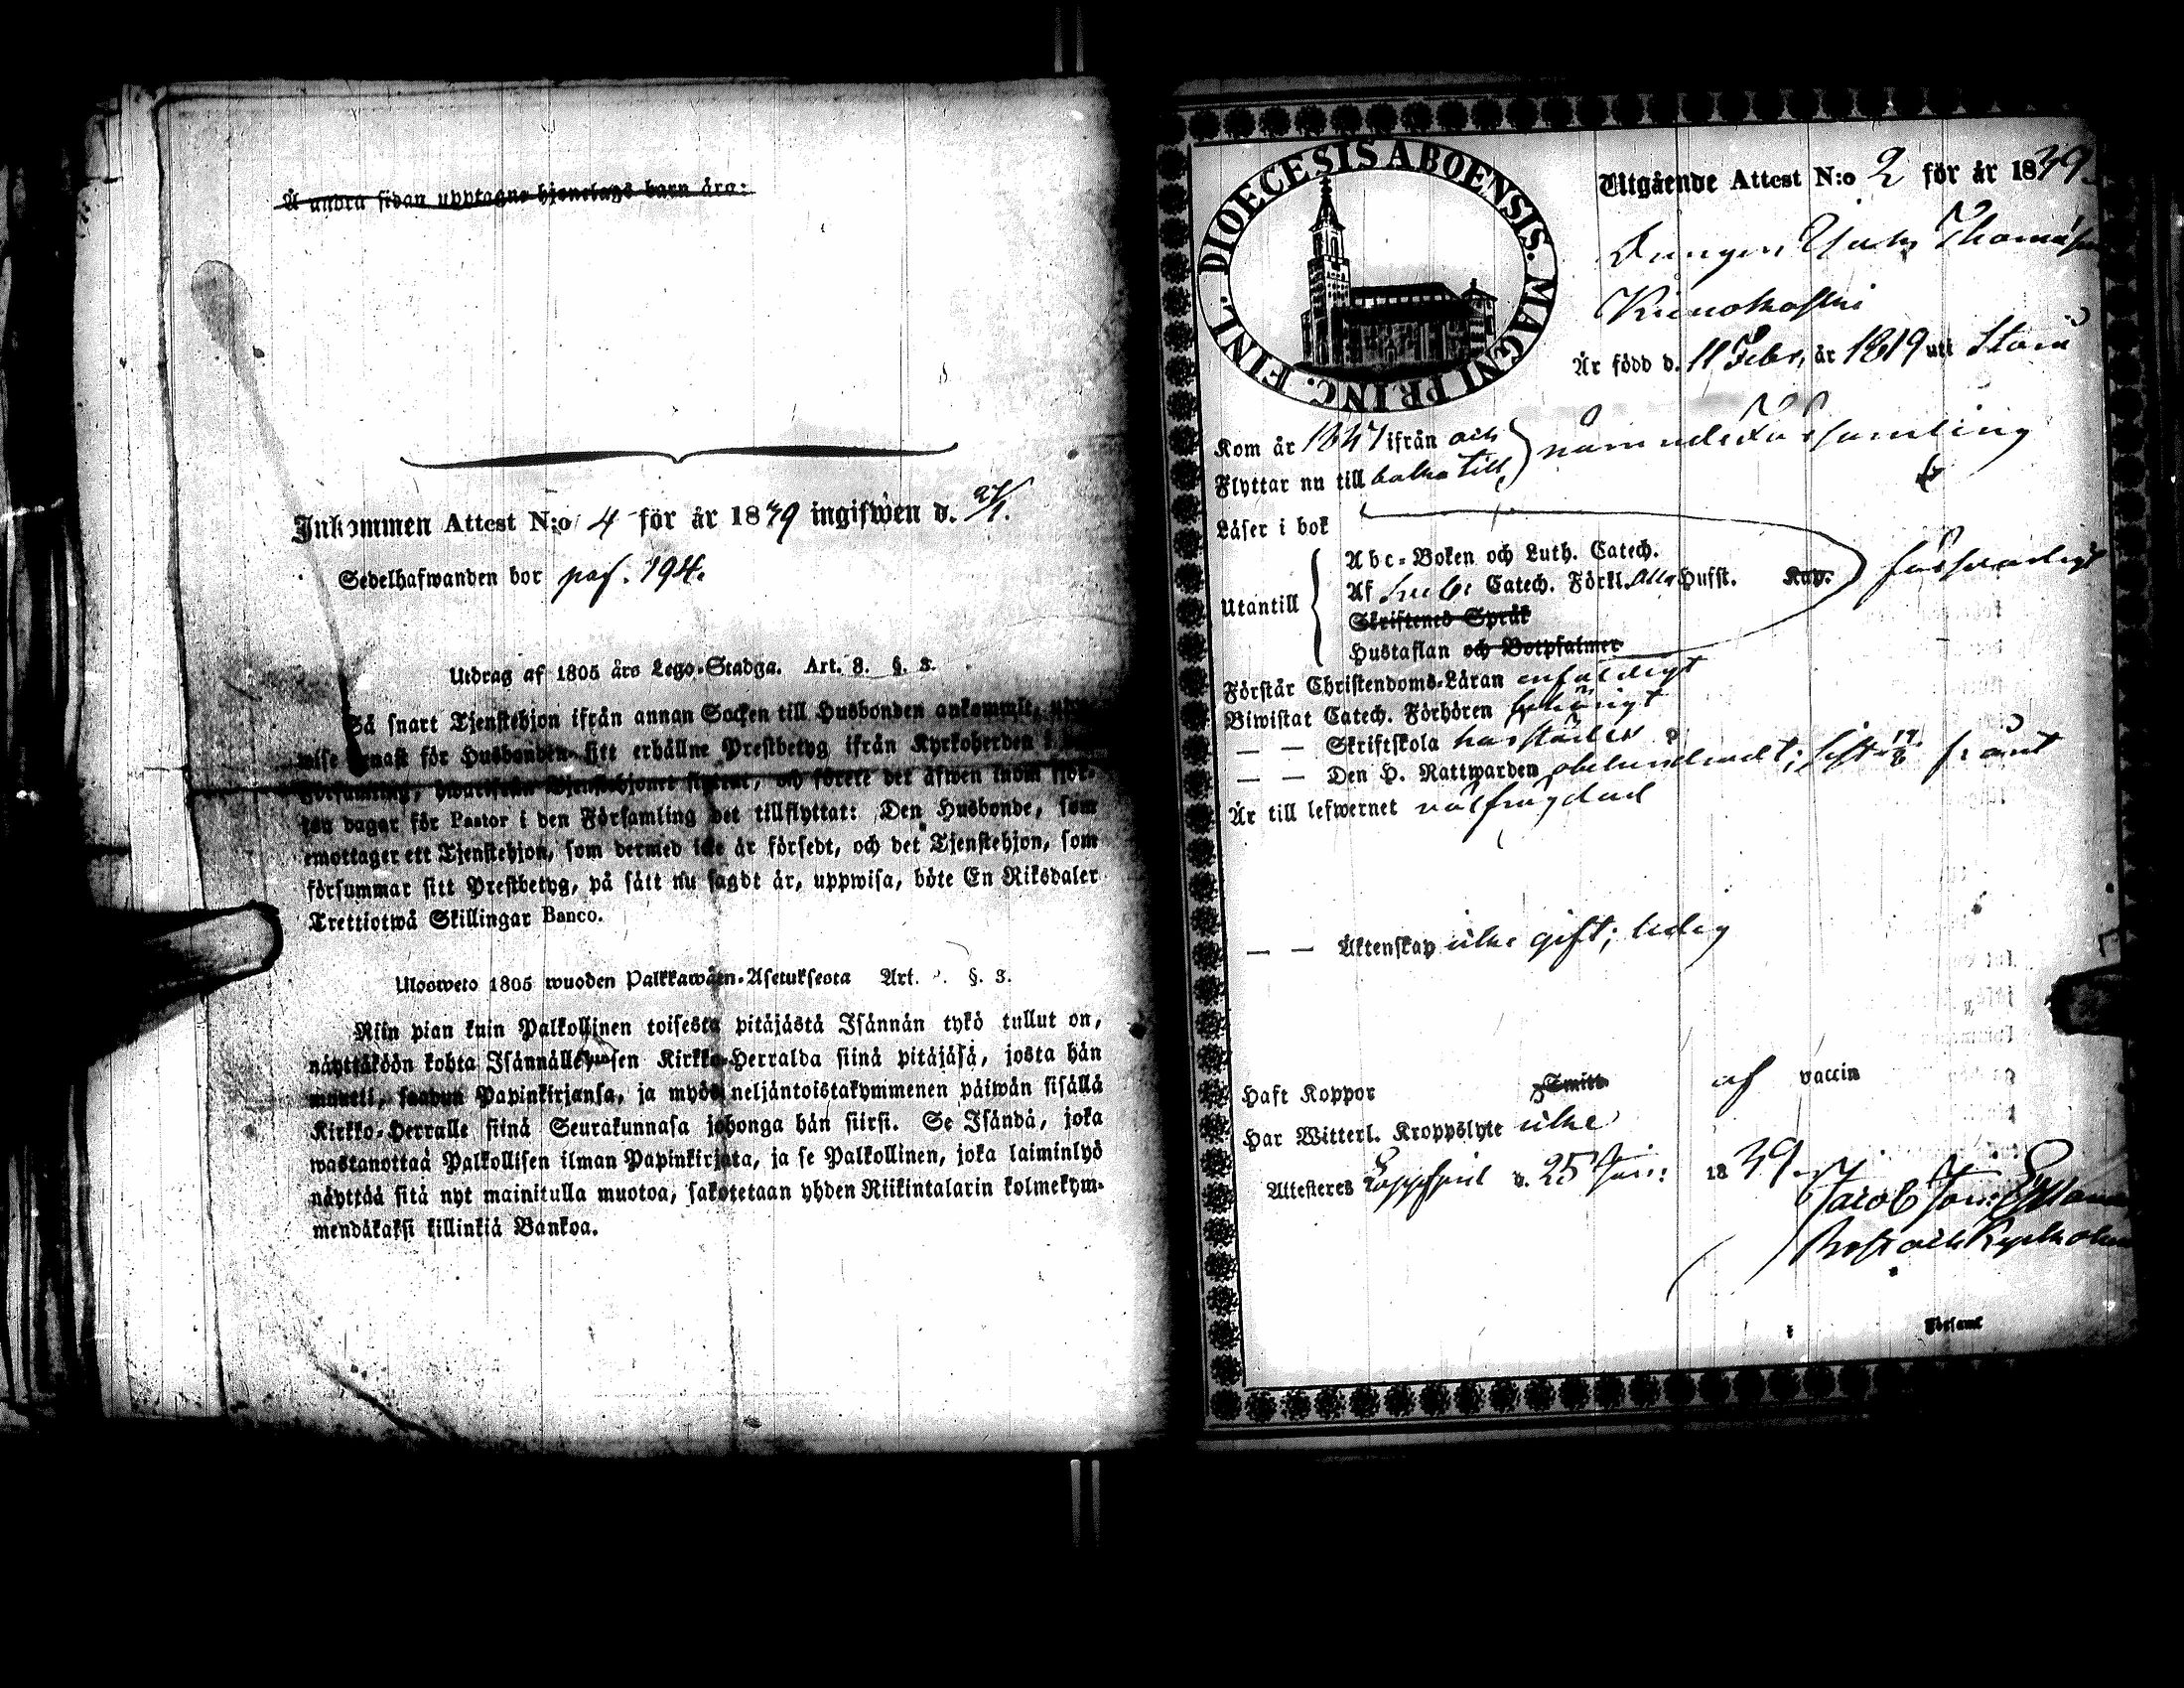 Å andra sidan upptagne hjonelags barn äro:
Inkommen Attest N:o 4 för år 1839 ingifwen d. 27/1.
Sedelhafwanden bor pag. 194.
Utdrag af 1805 års Lego-Stadga. Art. 8. §. 3.
Så snart Tjenstehjon ifrån annan Socken till Husbonden ankommit,
wise genast för Husbonden sitt erhållne Prestbetyg ifrån Kyrkoherden i
Församling, hwarifrån Tjenstehjonet flyttat, och förete det äfwen inom fjor-
ton dagar för Pastor i den Församling det tillflyttat: Den Husbonde, som
emottager ett Tjenstehjon, som dermed icke är försedt, och det Tjenstehjon, som
försummar sitt Prestbetyg, på sätt nu sagdt är, uppwisa, böte En Riksdaler
Trettiotwå Skillingar Banco.
Ulosweto 1805 wuoden Palkkawäen-Asetuksesta Art. §. 3.
Niin pian kuin Palkollinen toisesta pitäjästä Isännän tykö tullut on,
näyttäköön kohta Isännällensen Kirkko-Herralda siinä pitäjäsä, josta hän
muutti, saadun Papinkirjansa, ja myös neljäntoistakymmenen päiwän sisällä
Kirkko-Herralle siinä Seurakunnasa johonga hän siirsi. Se Isändä, joka
wastanottaa Palkollisen ilman Papinkirjata, ja se Palkollinen, joka laiminlyö
näyttää sitä nyt mainitulla muotoa, sakotetaan yhden Riikintalarin kolmekym-
mendäkaksi killinkiä Bankoa.
DIOECESIS ABOENSIS. MAGNI PRINC. FINL.
Utgående Attest N:o 2 för år 1839.
Drängen Thomasson
Är född d. 11 Febr. år 1819 uti
Kom år ifrån och
Flyttar nu till baka till nämnde Församling
Läser i bok
Abc-Boken och Luth. Catech.
Utantill Af Catech. Förkl. Hufst. Kap. försvarligt
Skriftenes Språk
Hustaflan och Botpsalmer
Förstår Christendoms-Läran enfaldigt
Biwistat Catech. Förhören
— — Skriftskola härstädes
— — Den H. Nattwarden
Är till lefwernet välfrägdad
— — Äktenskap icke gift; ledig
Haft Koppor Smitt af vaccin
Har Witterl. Kroppslyte icke
Attesteras d. 25 Jan: 1839.
Jacob Joh:
i Församl